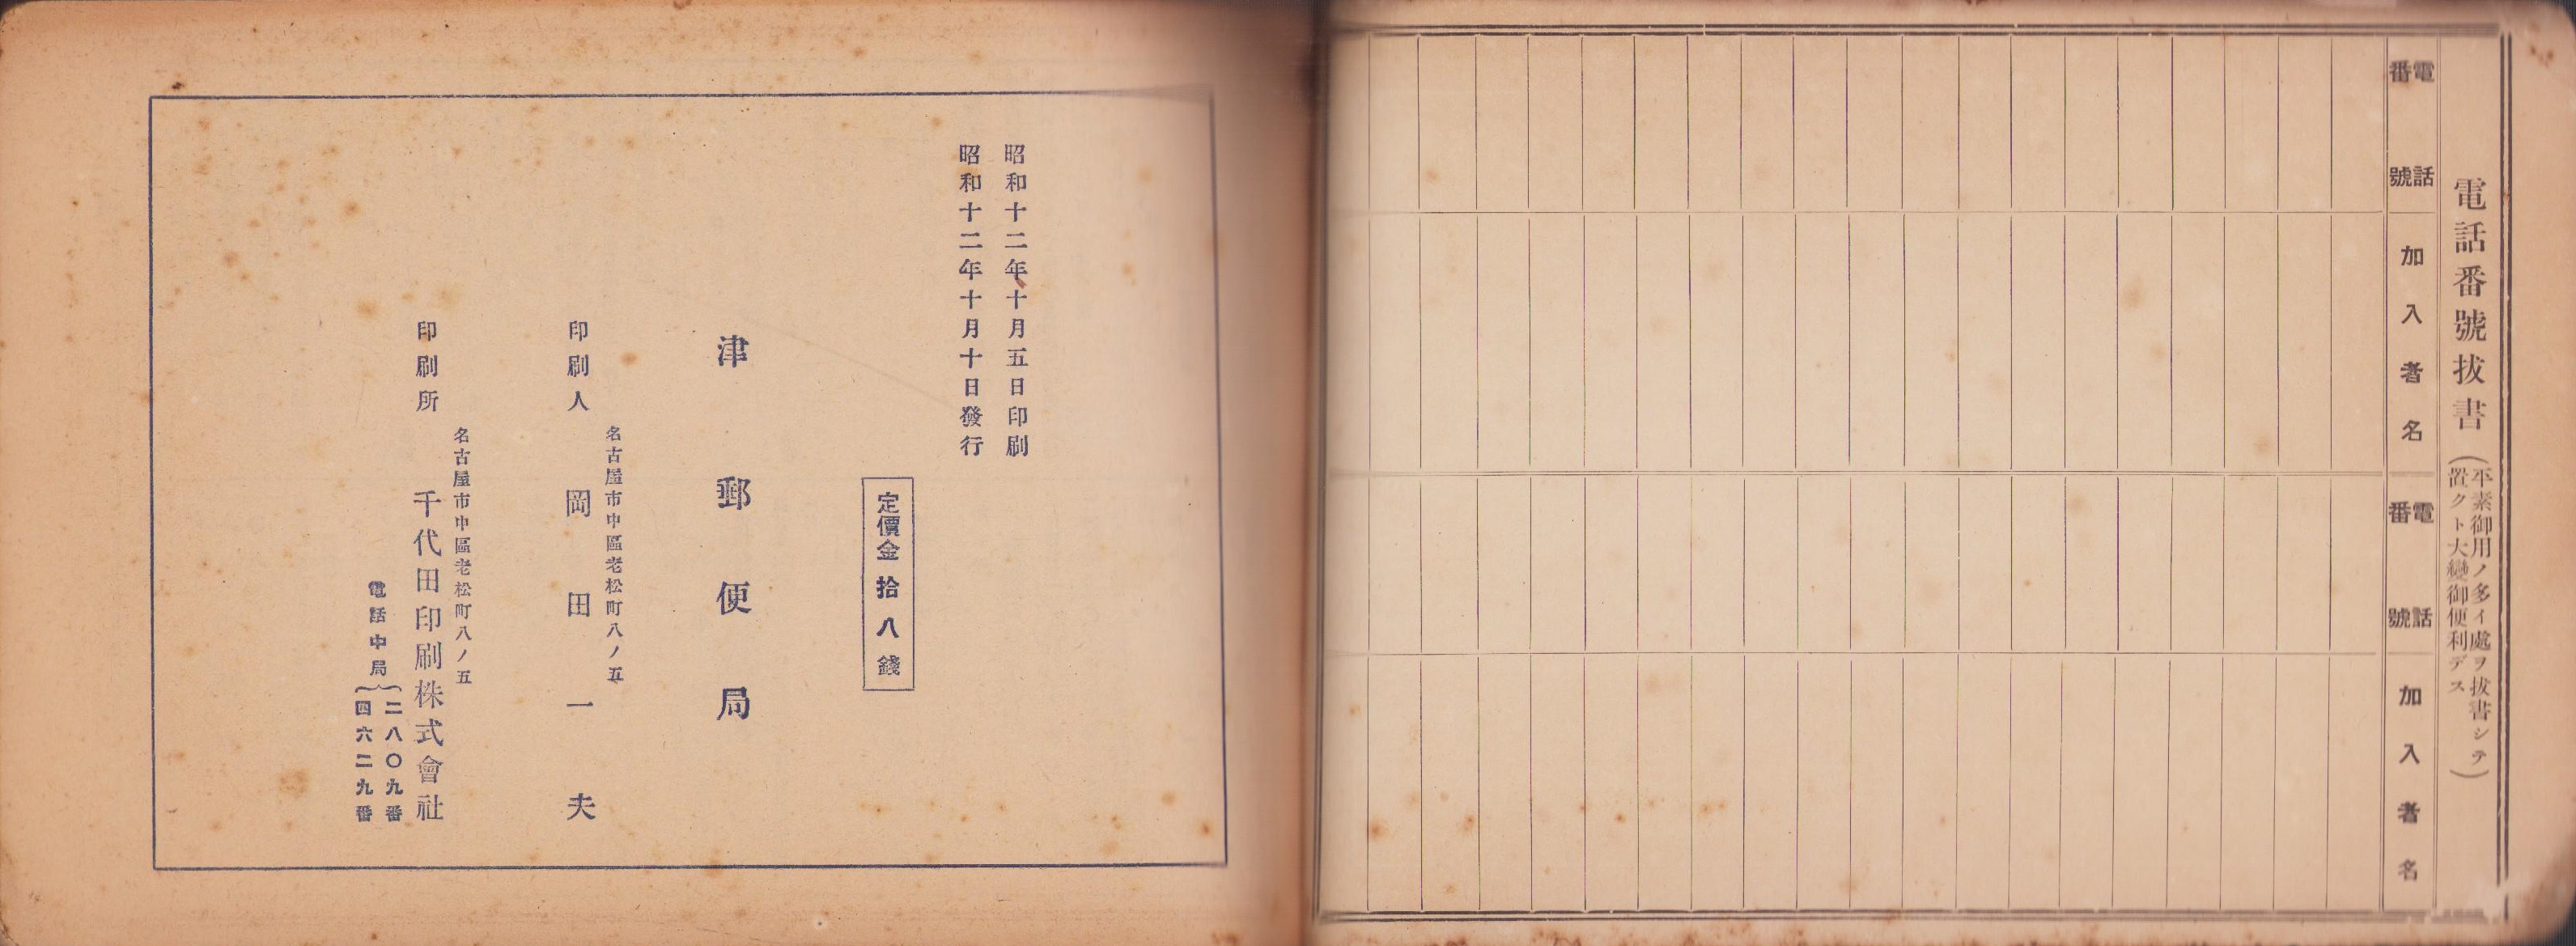 電話番號拔書
(平素御用ノ多イ處ヲ拔書シテ
置クト大變御便利デス)
電話番號
加入者名
電話番號
加入者名
昭和十二年十月五日印刷
昭和十二年十月十日發行
定價金拾八錢
津郵便局
名古屋市中區老松町八ノ五
印刷人 岡田一夫
名古屋市中區老松町八ノ五
印刷所 千代田印刷株式會社
電話中局
二八〇九番
四六二九番